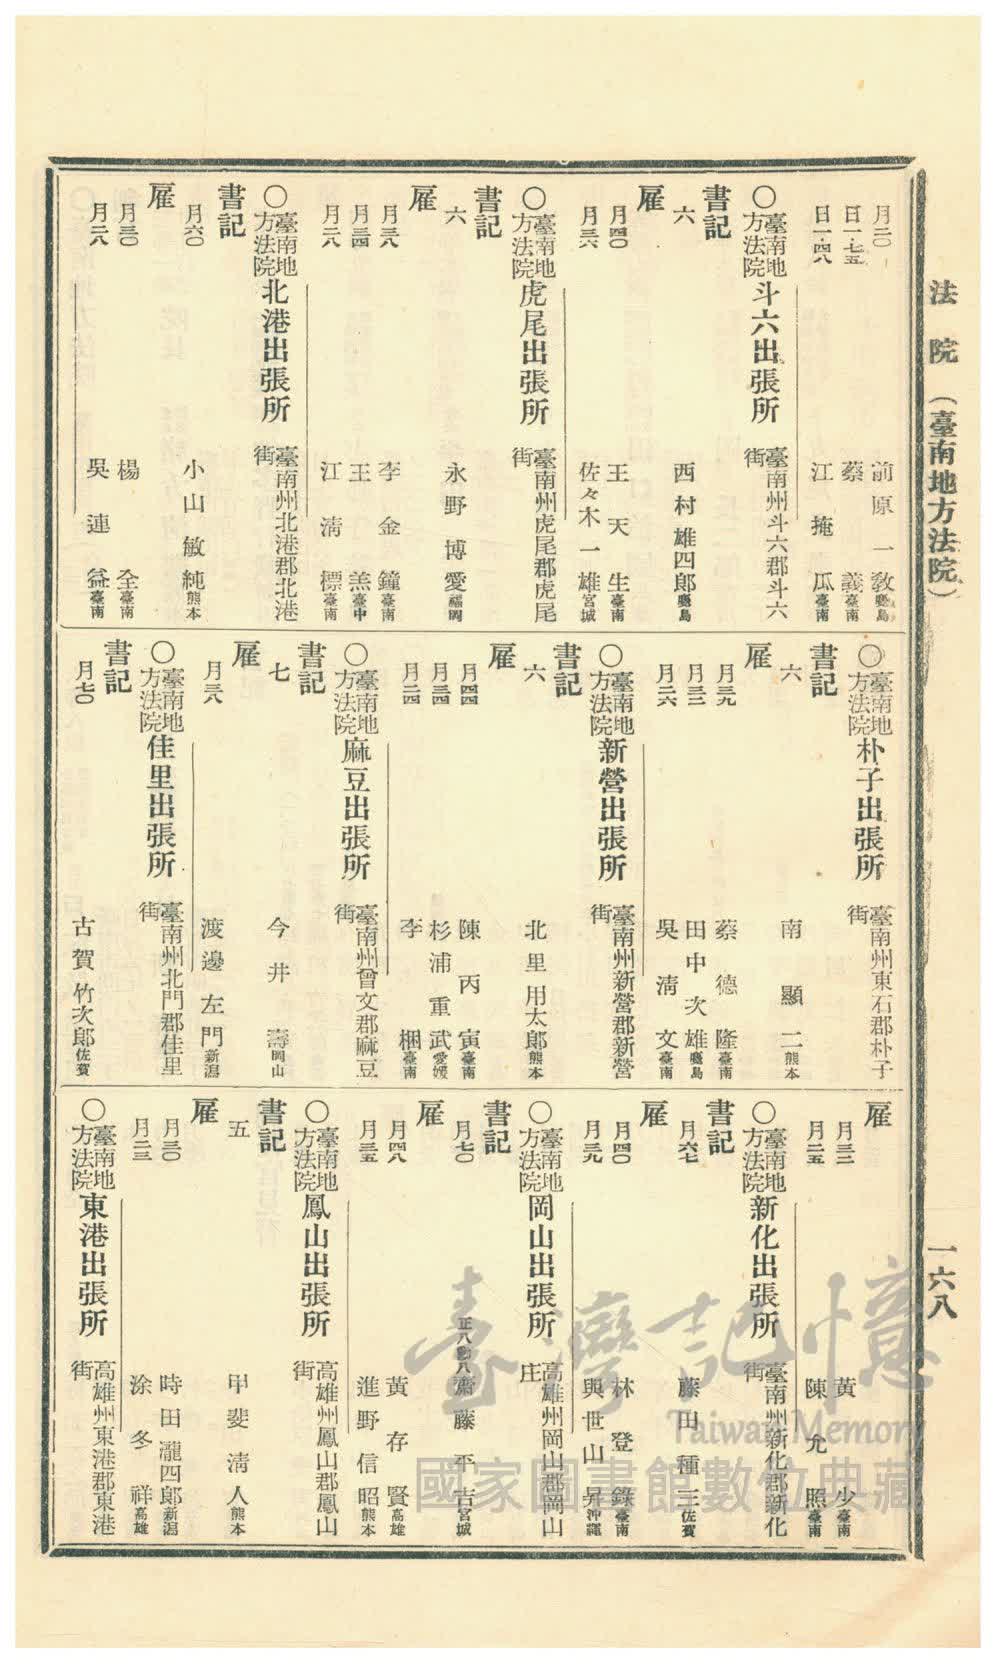 法院（臺南地方法院）
一六八
月二〇 前原一敎 廳島
日一・七五 蔡義 臺南
日一・四八 江掩瓜 臺南
〇臺南地方法院斗六出張所 臺南州斗六郡斗六街
書記
六 西村雄四郎 廳島
雇
月四〇 王天生 臺南
月三六 佐々木一雄 宮城
〇臺南地方法院虎尾出張所 臺南州虎尾郡虎尾街
書記
六 永野博愛 福岡
雇
月三八 李金鐘 臺南
月三四 王羔 臺中
月二八 江淸標 臺南
〇臺南地方法院北港出張所 臺南州北港郡北港街
書記
月六〇 小山敏純 熊本
雇
月三〇 楊全 臺南
月二八 吳連益 臺南
〇臺南地方法院朴子出張所 臺南州東石郡朴子街
書記
六 南顯二 熊本
雇
月三九 蔡德隆 臺南
月三二 田中次雄 廳島
月二六 吳淸文 臺南
〇臺南地方法院新營出張所 臺南州新營郡新營街
書記
六 北里用太郎 熊本
雇
月四四 陳丙寅 臺南
月三四 杉浦重武 愛媛
月二四 李梱 臺南
〇臺南地方法院麻豆出張所 臺南州曾文郡麻豆街
書記
七 今井壽 岡山
雇
月三八 渡邊左門 新潟
〇臺南地方法院佳里出張所 臺南州北門郡佳里街
書記
月七〇 古賀竹次郎 佐賀
雇
月三二 黃少 臺南
月二五 陳允照 臺南
〇臺南地方法院新化出張所 臺南州新化郡新化街
書記
月六七 藤田種三 佐賀
雇
月四〇 林登錄 臺南
月三九 與世山昇 沖繩
〇臺南地方法院岡山出張所 高雄州岡山郡岡山庄
書記
月七〇 正八勳八 齋藤平吉 宮城
雇
月四八 黃存賢 高雄
月三五 進野信昭 熊本
〇臺南地方法院鳳山出張所 高雄州鳳山郡鳳山街
書記
五 甲斐淸人 熊本
雇
月三〇 時田瀧四郎 新潟
月二三 涂冬祥 高雄
〇臺南地方法院東港出張所 高雄州東港郡東港街
臺灣記憶
Taiwan Memory
國家圖書館數位典藏